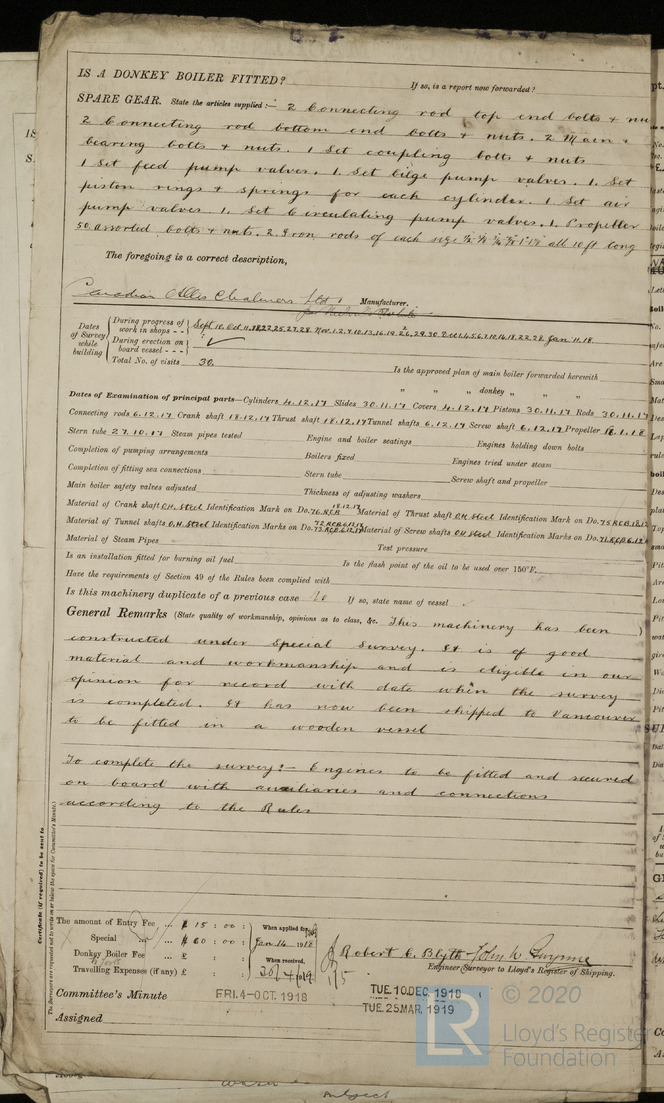 IS A DONKEY BOILER FITTED? If so, is a report now forwarded?
SPARE GEAR. State the articles supplied:— 2 Connecting rod top end bolts + nu
2 Connecting rod bottom end bolts + nuts. 2 Main
bearing bolts + nuts. 1 Set coupling bolts + nuts
1 Set feed pump valves. 1. Set bilge pump valves. 1. Set
piston rings + springs for each cylinder. 1 Set air
pump valves. 1. Set Circulating pump valves. 1. Propeller
50 assorted bolts + nuts. 2. Iron rods of each size all 10 ft long
The foregoing is a correct description,
Canadian Allis Chalmers Ltd Manufacturer.
Dates of Survey while building
During progress of work in shops - - Sept. 10. Oct 11.18.22.25.27.29. Nov. 1.2.9.10.13.16.19. 29.30 Jan 11.18.
During erection on board vessel - - - ✓
Total No. of visits 30.
Is the approved plan of main boiler forwarded herewith
" " " donkey " " "
Dates of Examination of principal parts—Cylinders 4.12.17 Slides 30.11.17 Covers 4.12.17 Pistons 30.11.17 Rods 30.11.17
Connecting rods 6.12.17 Crank shaft 18.12.17 Thrust shaft 18.12.17 Tunnel shafts 6.12.17 Screw shaft 6.12.17 Propeller 1.18
Stern tube 27.10.17 Steam pipes tested Engine and boiler seatings Engines holding down bolts
Completion of pumping arrangements Boilers fixed Engines tried under steam
Completion of fitting sea connections Stern tube Screw shaft and propeller
Main boiler safety valves adjusted Thickness of adjusting washers
Material of Crank shaft O.H. Steel Identification Mark on Do. 76.RCB 18.12.17 Material of Thrust shaft O.H. Steel Identification Mark on Do. 75 RCB 18.12
Material of Tunnel shafts O.H. Steel Identification Marks on Do. 72.RCB.6.12.17 73.RCB.6.12.17 Material of Screw shafts O.H Steel Identification Marks on Do. 71.RCB.6.12
Material of Steam Pipes Test pressure
Is an installation fitted for burning oil fuel Is the flash point of the oil to be used over 150°F.
Have the requirements of Section 49 of the Rules been complied with
Is this machinery duplicate of a previous case No If so, state name of vessel
General Remarks (State quality of workmanship, opinions as to class, &c. This machinery has been
constructed under Special Survey. It is of good
material and workmanship and is eligible in our
opinion for record with date when the survey
is completed. It has now been shipped to Vancouver
to be fitted in a wooden vessel
To complete the survey:— Engines to be fitted and secured
on board with auxiliaries and connections
according to the Rules
Certificate (if required) to be sent to
(The Surveyors are requested not to write on or below the space for Committee's Minute.)
The amount of Entry Fee ... $ 15 : 00 : When applied for,
Special ... $ 60 : 00 : Jan 14 1918
Donkey Boiler Fee ... £ : : When received,
Travelling Expenses (if any) £ : : 30/4/19
Robert C. Blyth John W Gwynne
Engineer Surveyor to Lloyd's Register of Shipping.
Committee's Minute FRI. 4-OCT. 1918 TUE. 10 DEC. 1918
TUE. 25 MAR. 1919
Assigned
© 2020
LR
Lloyd's Register
Foundation